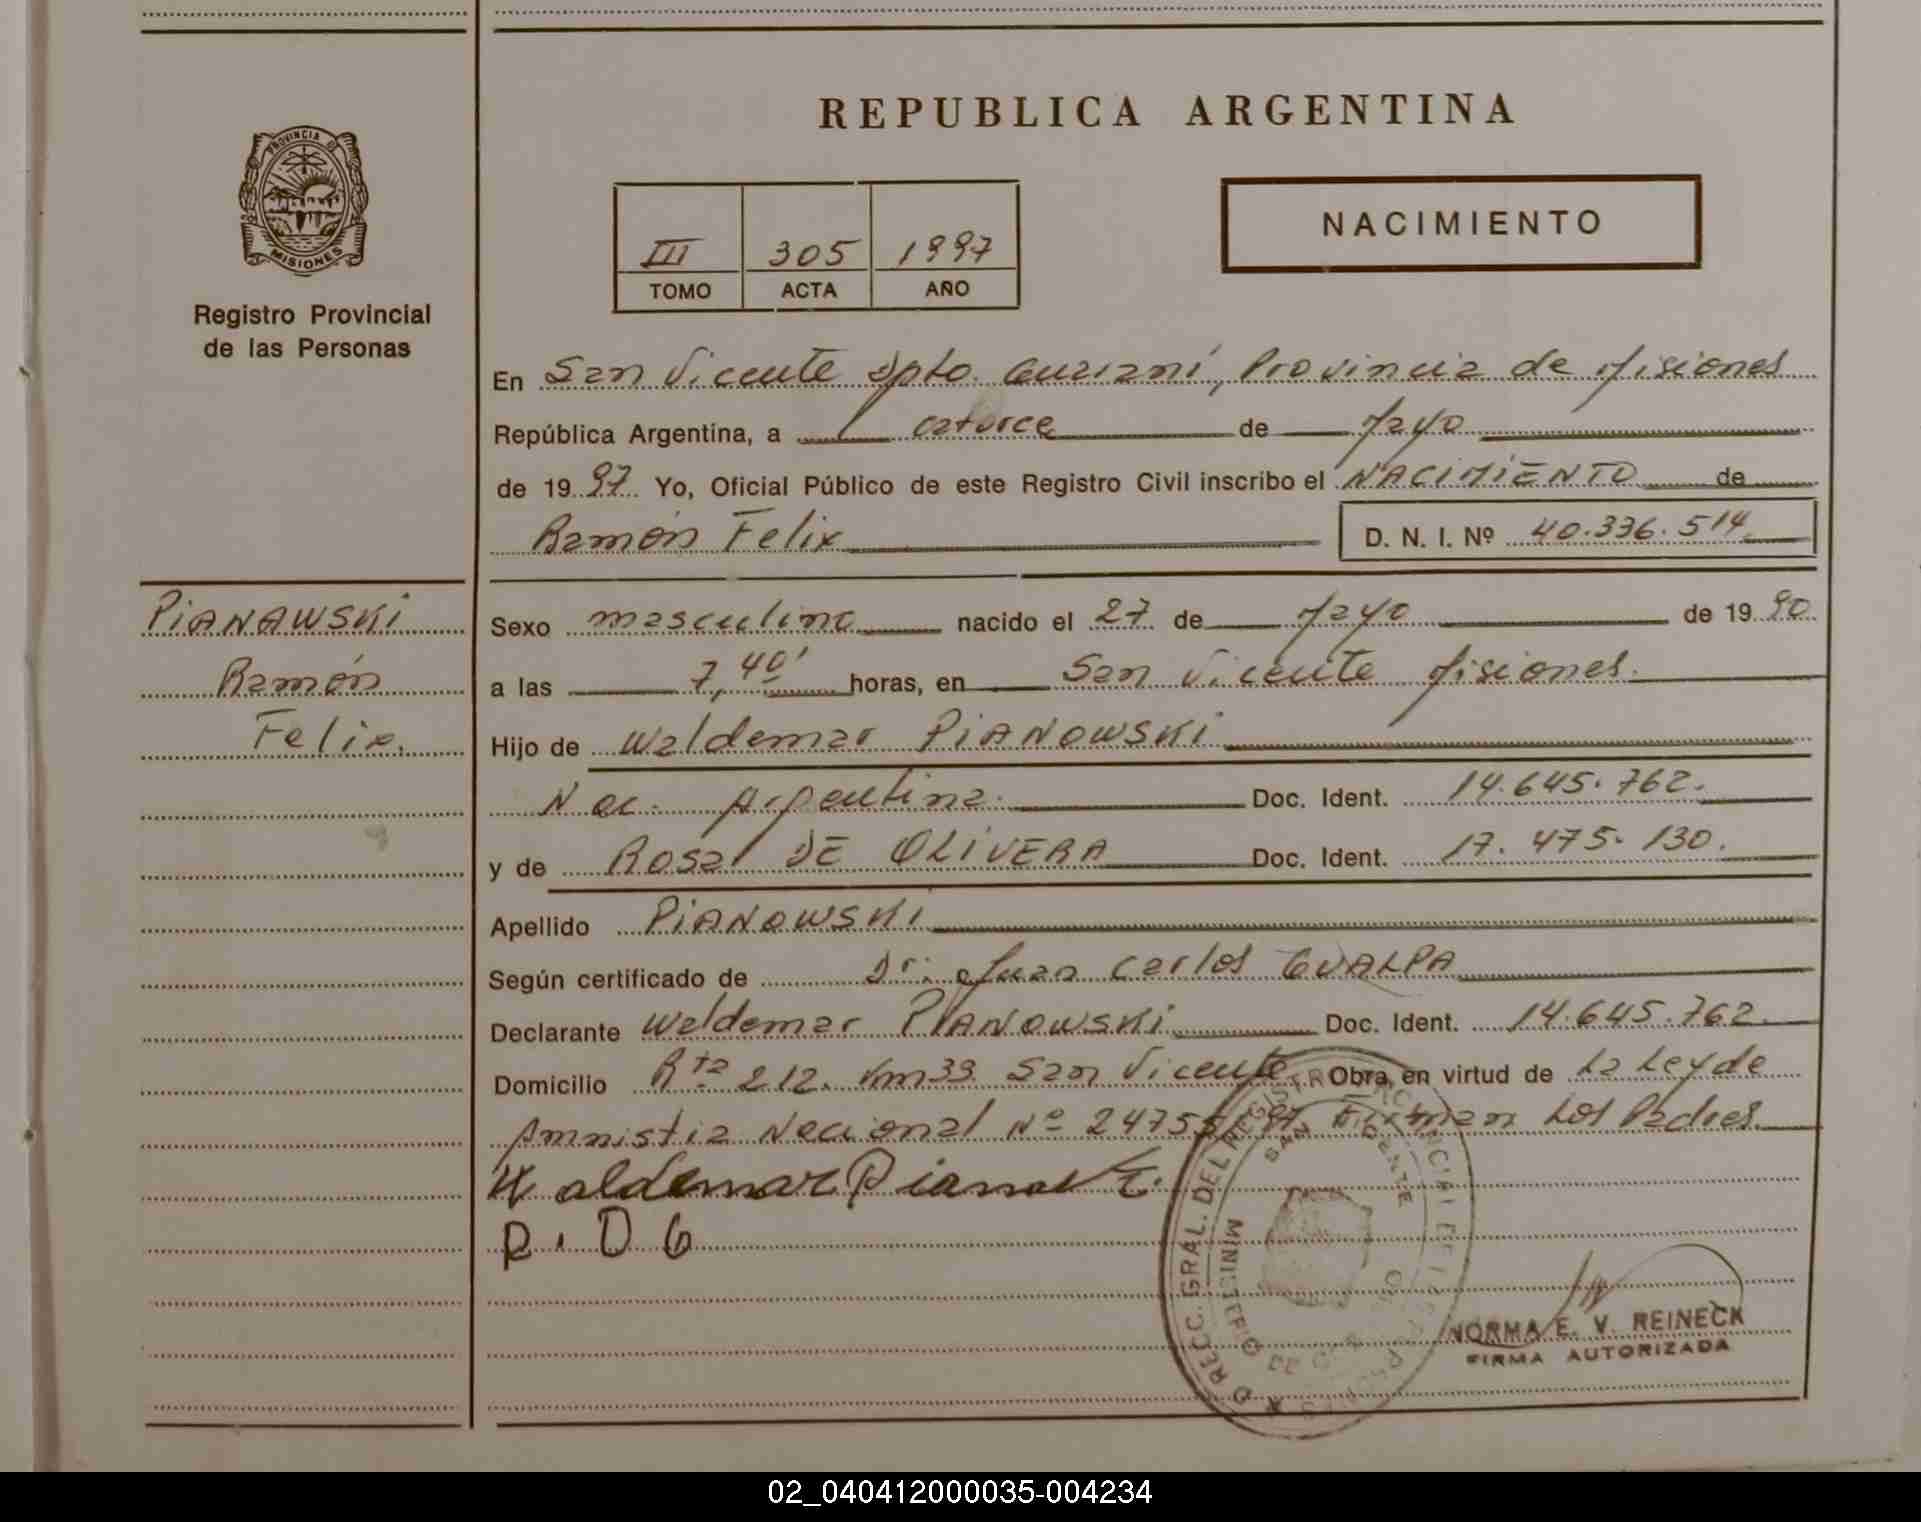 REPUBLICA ARGENTINA
PROVINCIA DE
MISIONES
Registro Provincial
de las Personas
III 305 1997
TOMO ACTA AÑO
NACIMIENTO
En San Vicente Dpto. Guaraní, Provincia de Misiones
República Argentina, a catorce de Mayo
de 1997 Yo, Oficial Público de este Registro Civil inscribo el NACIMIENTO de
Ramón Felix D. N. I. Nº 40.336.514
PiANAWSKi
Ramón
Felix.
Sexo masculino nacido el 27 de Mayo de 1990
a las 7,40' horas, en San Vicente Misiones.
Hijo de Waldemar PiANOWSKi
Nac. Argentina. Doc. Ident. 14.645.762.
y de Rosa DE OLIVERA Doc. Ident. 17.475.130.
Apellido PiANOWSKi
Según certificado de Dr. Juan Carlos GUALPA
Declarante Waldemar PIANOWSKi Doc. Ident. 14.645.762.
Domicilio Rta 212. Km 33 San Vicente Obra en virtud de La Ley de
Amnistia Nacional Nº 24755/97 Firman Los Padres.
Waldemar
R. D O
DIRECC. GRAL. DEL REGISTRO PROVINCIAL DE LAS PERSONAS
SAN VICENTE
MINISTERIO DE GOBIERNO
NORMA E. V. REINECK
FIRMA AUTORIZADA
02_040412000035-004234